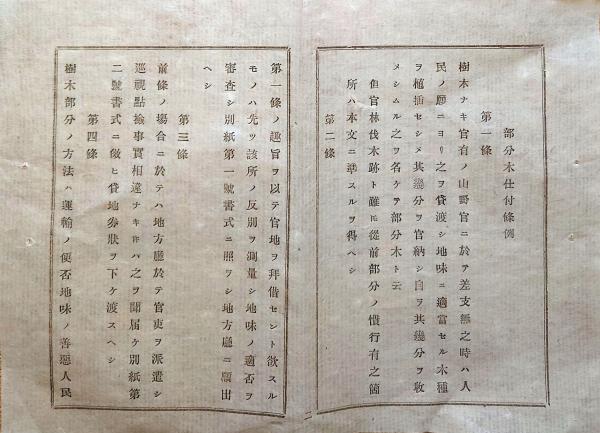 部分木仕付條例
第一條
樹木ナキ官有ノ山野官ニ於テ差支無之時ハ人
民ノ願ニヨリ之ヲ貸渡シ地味ニ適當セル木種
ヲ植插セシメ其幾分ヲ官納シ自ヲ其幾分ヲ收
メシムル之ヲ名ケヲ部分木ト云
但官林伐木跡ト雖𪜈從前部分ノ慣行有之箇
所ハ本文ニ準スルヲ得ヘシ
第二條
第一條ノ趣旨ヲ以テ官地ヲ拜借セント欲スル
モノハ先ツ該所ノ反別ヲ測量シ地味ノ適否ヲ
審査シ別紙第一號書式ニ照ヲシ地方廳ニ願出
ヘシ
第三條
前條ノ塲合ニ於テハ地方廳於テ官吏ヲ派遣シ
巡視點撿事實相違ナキ時ハ之ヲ聞届ケ別紙第
二號書式ニ倣ヒ貸地券狀ヲ下ケ渡スヘシ
第四條
樹木部分ノ方法ハ運輸ノ便否地味ノ善惡人民